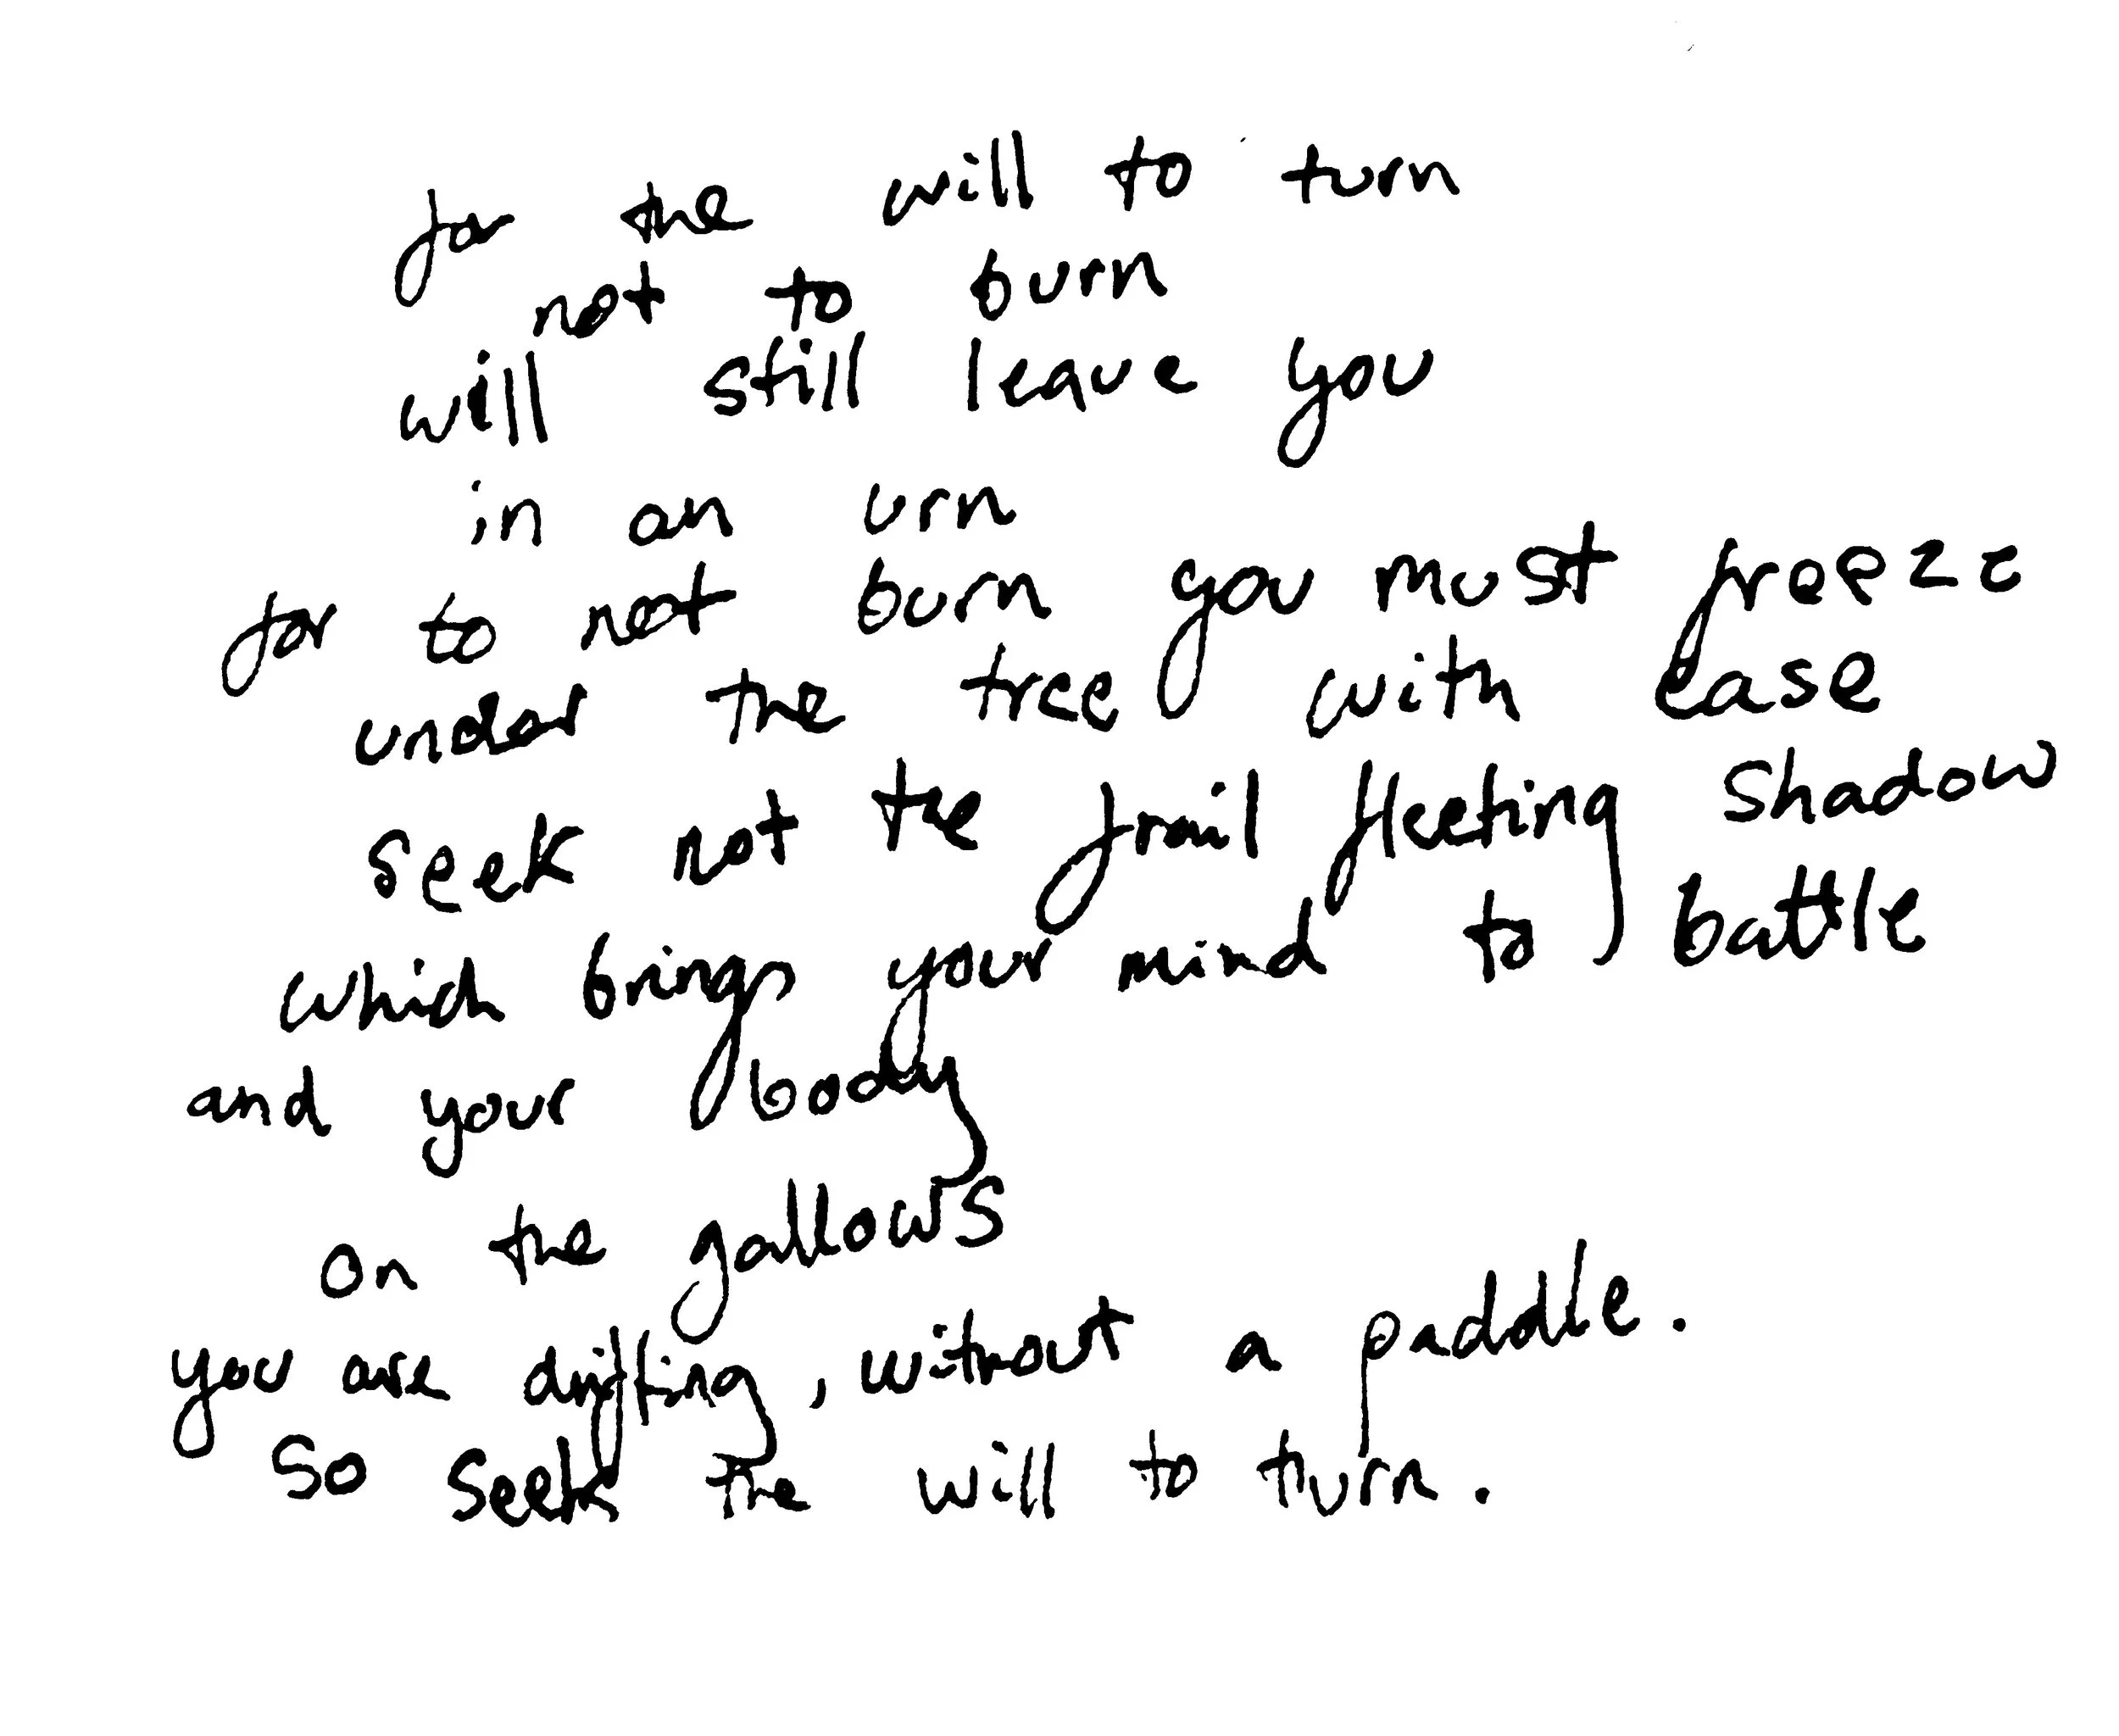 for the will to turn
not to burn
will still leave you
in an urn
for to not burn you must freeze
under the tree with ease
seek not the frail fleeting shadow
which brings your mind to battle
and your body
on the gallows
you are drifting, without a paddle.
So seek the will to turn.